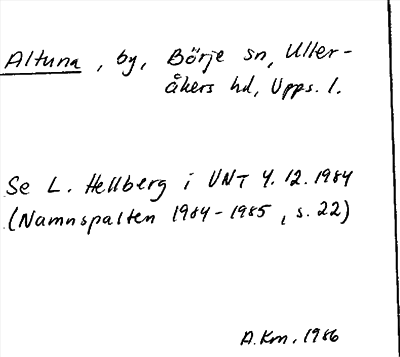 Altuna, by, Börje sn, Uller-
åkers hd, Upps. l.
Se L. Hellberg i UNT 4.12.1984
(Namnspalten 1984-1985, s. 22)
A.Km. 1986